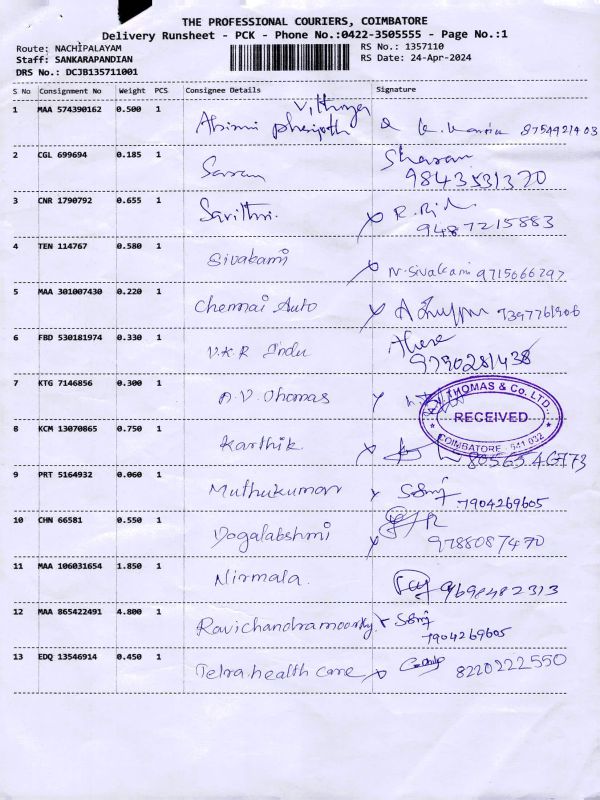 THE PROFESSIONAL COURIERS, COIMBATORE
Delivery Runsheet - PCK - Phone No.:0422-3505555 - Page No.:1
Route: NACHIPALAYAM
Staff: SANKARAPANDIAN
DRS No.: DCJB135711001
RS No.: 1357110
RS Date: 24-Apr-2024
S No Consignment No Weight PCS Consignee Details Signature
1 MAA 574390162 0.500 1 8754921403
2 CGL 699694 0.185 1 Saran Sharan
9843531370
3 CNR 1790792 0.655 1 Savithri.
9487215883
4 TEN 114767 0.580 1 Sivakami N. Sivakami 9715066297
5 MAA 301007430 0.220 1 Chennai Auto 9397761906
6 FBD 530181974 0.330 1 V.K.R Indu
9790281438
7 KTG 7146856 0.300 1 A.V. Thomas
A.V. THOMAS & Co. LTD.
RECEIVED
COIMBATORE - 641 032
8 KCM 13070865 0.750 1 Karthik.
9 PRT 5164932 0.060 1 Muthukumar
7904269605
10 CHN 66581 0.550 1 Yogalabshmi
9788087470
11 MAA 106031654 1.850 1 Nirmala. 9698482313
12 MAA 865422491 4.800 1 Ravichandramoorthy
7904269605
13 EDQ 13546914 0.450 1 Tetra health care 8220222550